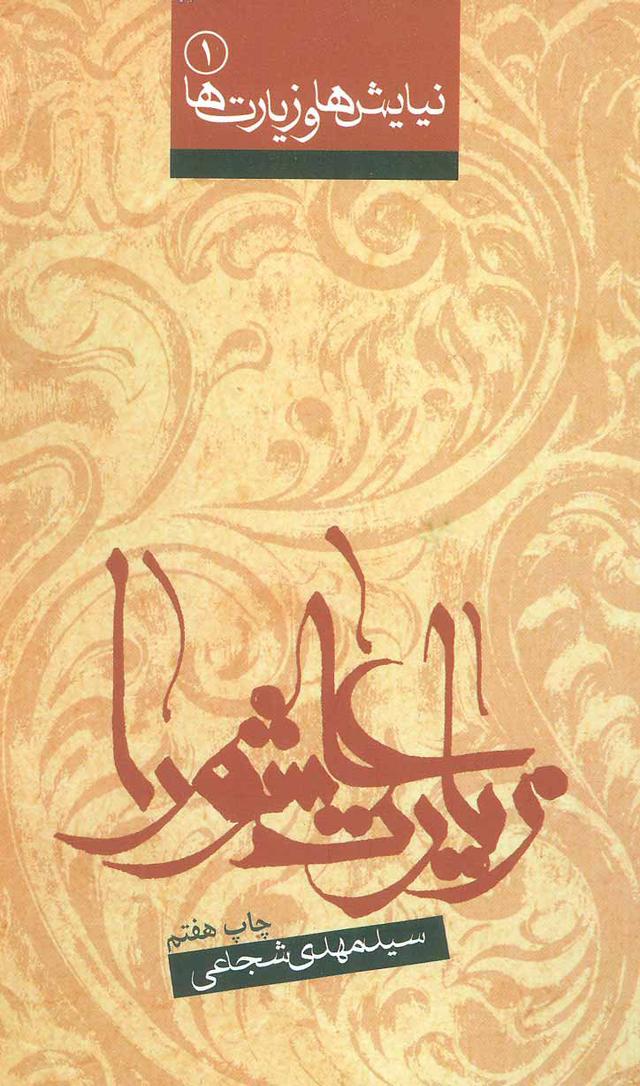 ۱
نیایش‌ها و زیارت‌ها
زیارت عاشورا
چاپ هفتم
سیدمهدی شجاعی